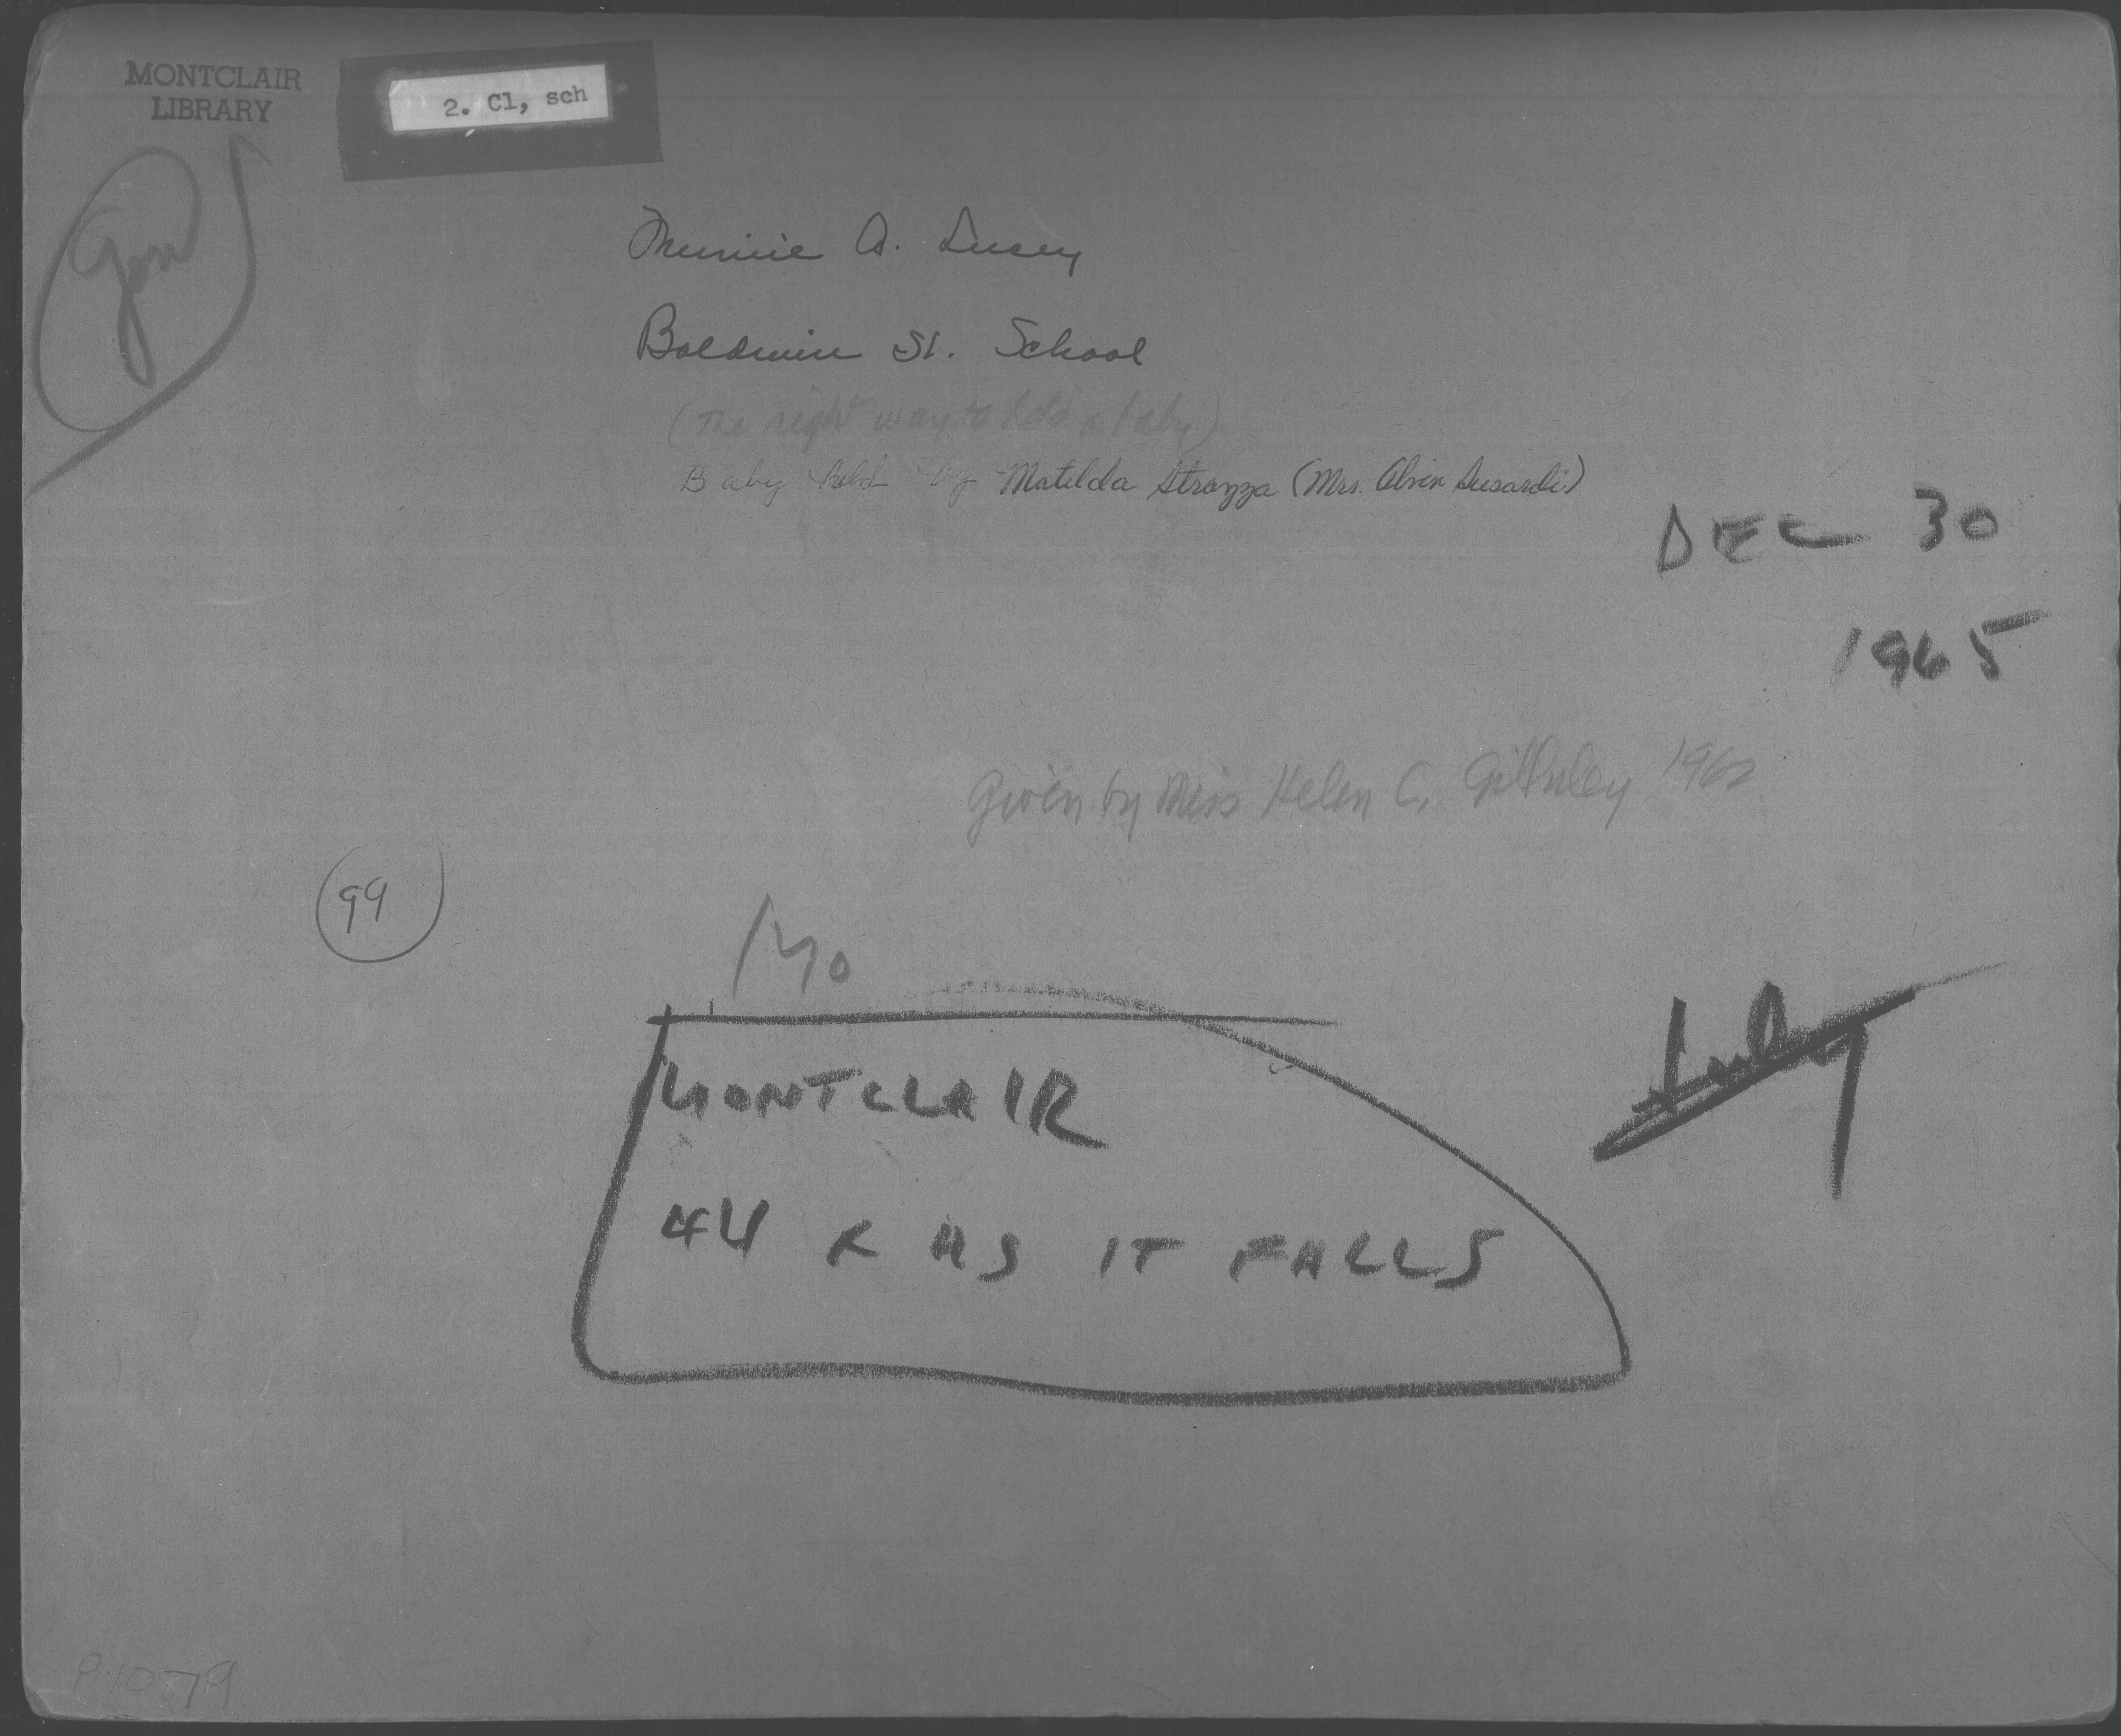 MONTCLAIR
LIBRARY
2. Cl, sch
Minnie A. Lucey
Baldwin St. School
(The right way to hold a baby)
Baby held by Matilda Strozza (Mrs. Alvin Lusardi)
DEC 30
1965
Given by Miss Helen C. 1962
99
MONTCLAIR
44 x AS IT FALLS
P.1079